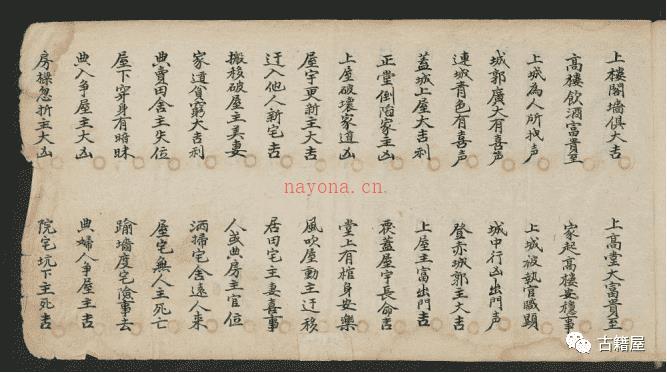 上樓閣墻俱大吉 上高堂大富貴至
高樓飲酒富貴至 家起高樓安穩事
上城為人所拽声 上城被執官職顕
城郭廣大有喜声 城中行凶出門声
連城青色有喜声 登赤城郭主大吉
蓋城上屋大吉利 上屋主富出門吉
正堂倒陷家主凶 覆蓋屋宇長命吉
上屋破壞家道凶 堂上有棺身安樂
屋宇更新主大吉 風吹屋動主迁移
迁入他人新宅吉 居田宅主妻喜事
搬移破屋主美妻 人或典房主官位
家道貧窮大吉利 洒掃宅舍遠人来
典賣田舍主失位 屋宅無人主死亡
屋下穿身有暗昧 踰墻度宅險事去
典人爭屋主大凶 典婦人爭屋主吉
房樑忽折主大凶 院宅坑下主死吉
nayona.cn
古籍屋